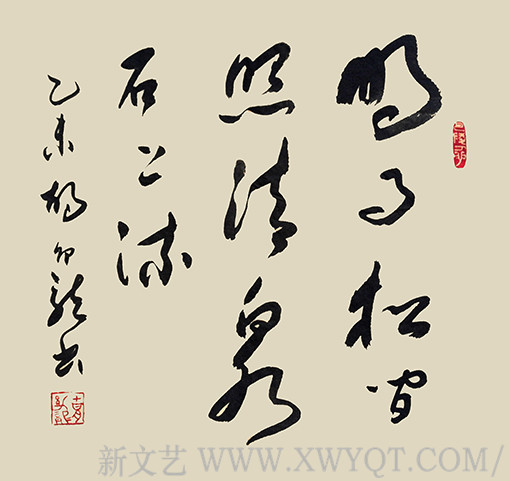 明月松間
照清泉
石上流
乙未 龍书
新文艺 WWW.XWYQT.COM